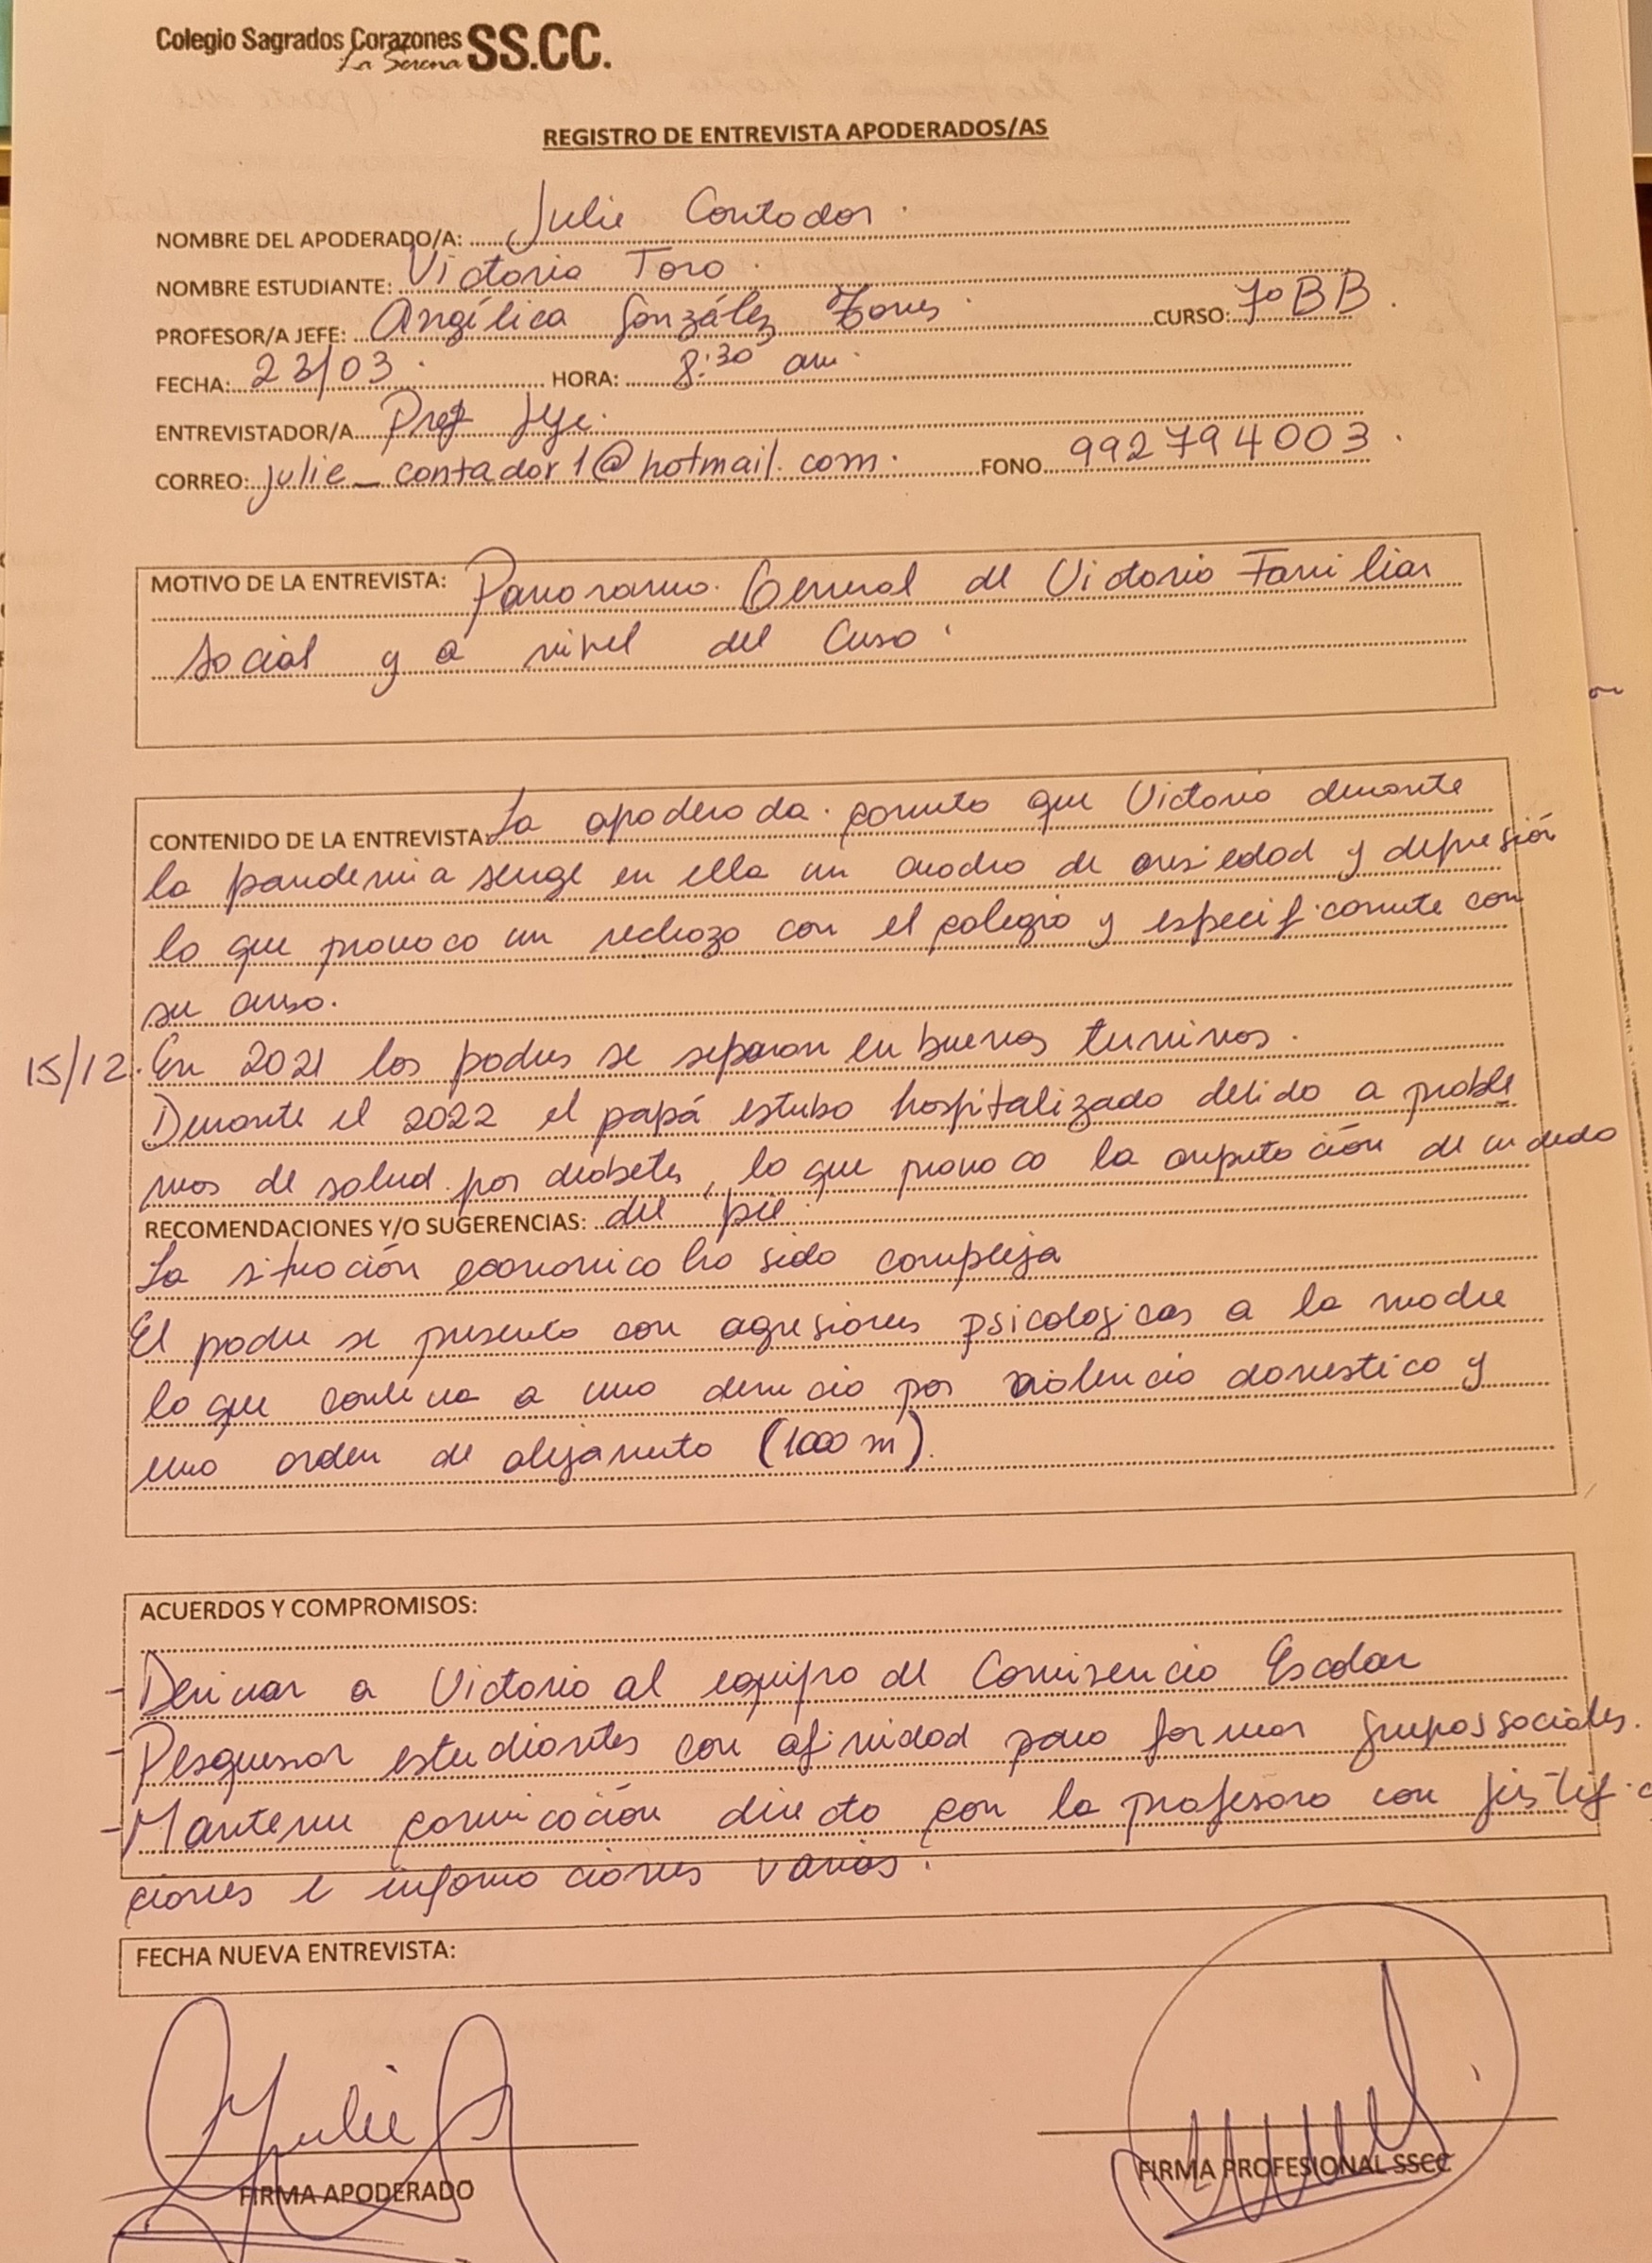 Colegio Sagrados Corazones SS.CC.
La Serena
REGISTRO DE ENTREVISTA APODERADOS/AS
NOMBRE DEL APODERADO/A: Julie Contador.
NOMBRE ESTUDIANTE: Victoria Toro.
PROFESOR/A JEFE: Angélica González Torres. CURSO: 7º BB.
FECHA: 23/03. HORA: 8:30 am.
ENTREVISTADOR/A Prof Jefe.
CORREO: julie_contador1@hotmail.com. FONO 992794003.
MOTIVO DE LA ENTREVISTA: Panorama General de Victoria Familiar
social y a nivel del Curso.
CONTENIDO DE LA ENTREVISTA: La apoderada comenta que Victoria durante
la pandemia surge en ella un cuadro de ansiedad y depresión
lo que provoco un rechazo con el colegio y especificamente con
su curso.
15/12. En 2021 los padres se separan en buenos terminos.
Durante el 2022 el papá estubo hospitalizado debido a proble
mas de salud por diabetes, lo que provoco la amputación de un dedo
RECOMENDACIONES Y/O SUGERENCIAS: del pie.
La situación economica ha sido compleja
El padre se presenta con agresiones psicologicas a la madre
lo que conlleva a una denuncia por violencia domestica y
una orden de alejamiento (1000 m).
ACUERDOS Y COMPROMISOS:
- Derivar a Victoria al equipo de Convivencia Escolar
- Pesquisar estudiantes con afinidad para formar grupos sociales.
- Mantener comunicación directa con la profesora con justifica
ciones e informaciones varias.
FECHA NUEVA ENTREVISTA:
Julie
FIRMA APODERADO FIRMA PROFESIONAL SSCC